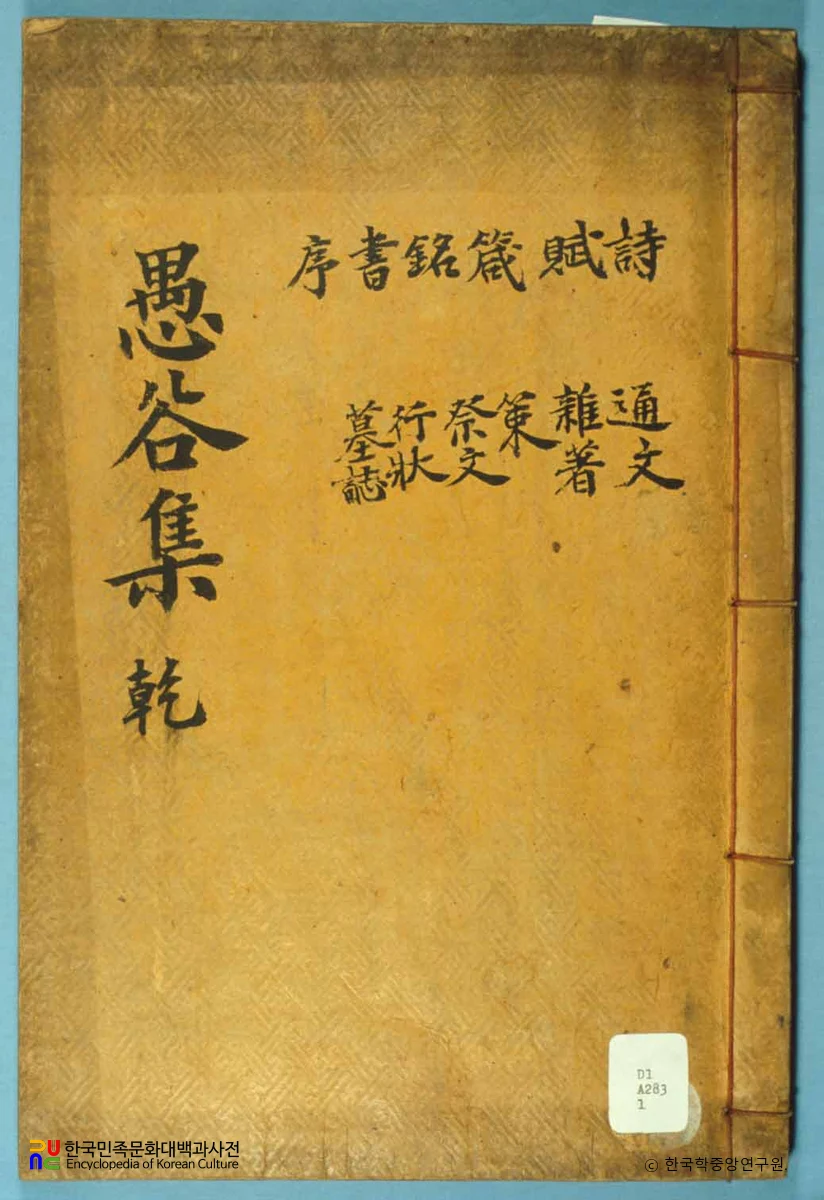 詩 賦 箴 銘 書 序
通文 雜著 策 祭文 行狀 墓誌
愚谷集 乾
D1
A283
1
한국민족문화대백과사전
Encyclopedia of Korean Culture
© 한국학중앙연구원.